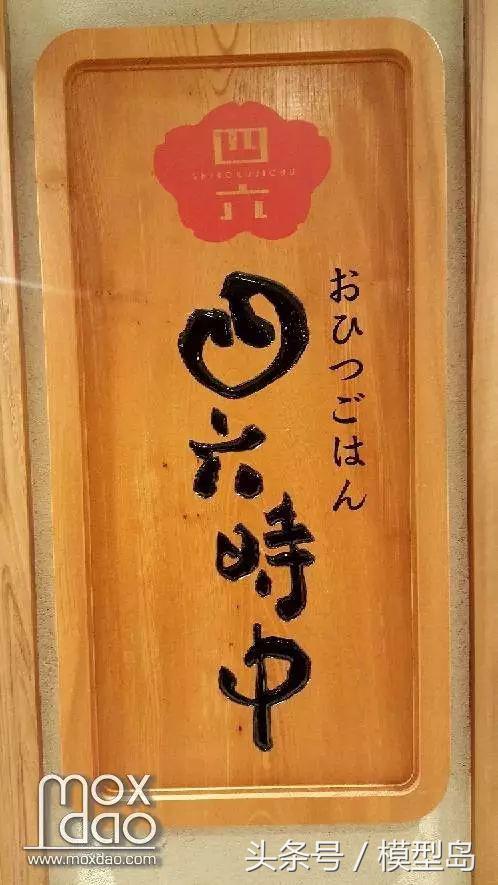 四
SHIROKUJICHU
六
おひつごはん
四六時中
mox
dao
www.moxdao.com
头条号 / 模型岛